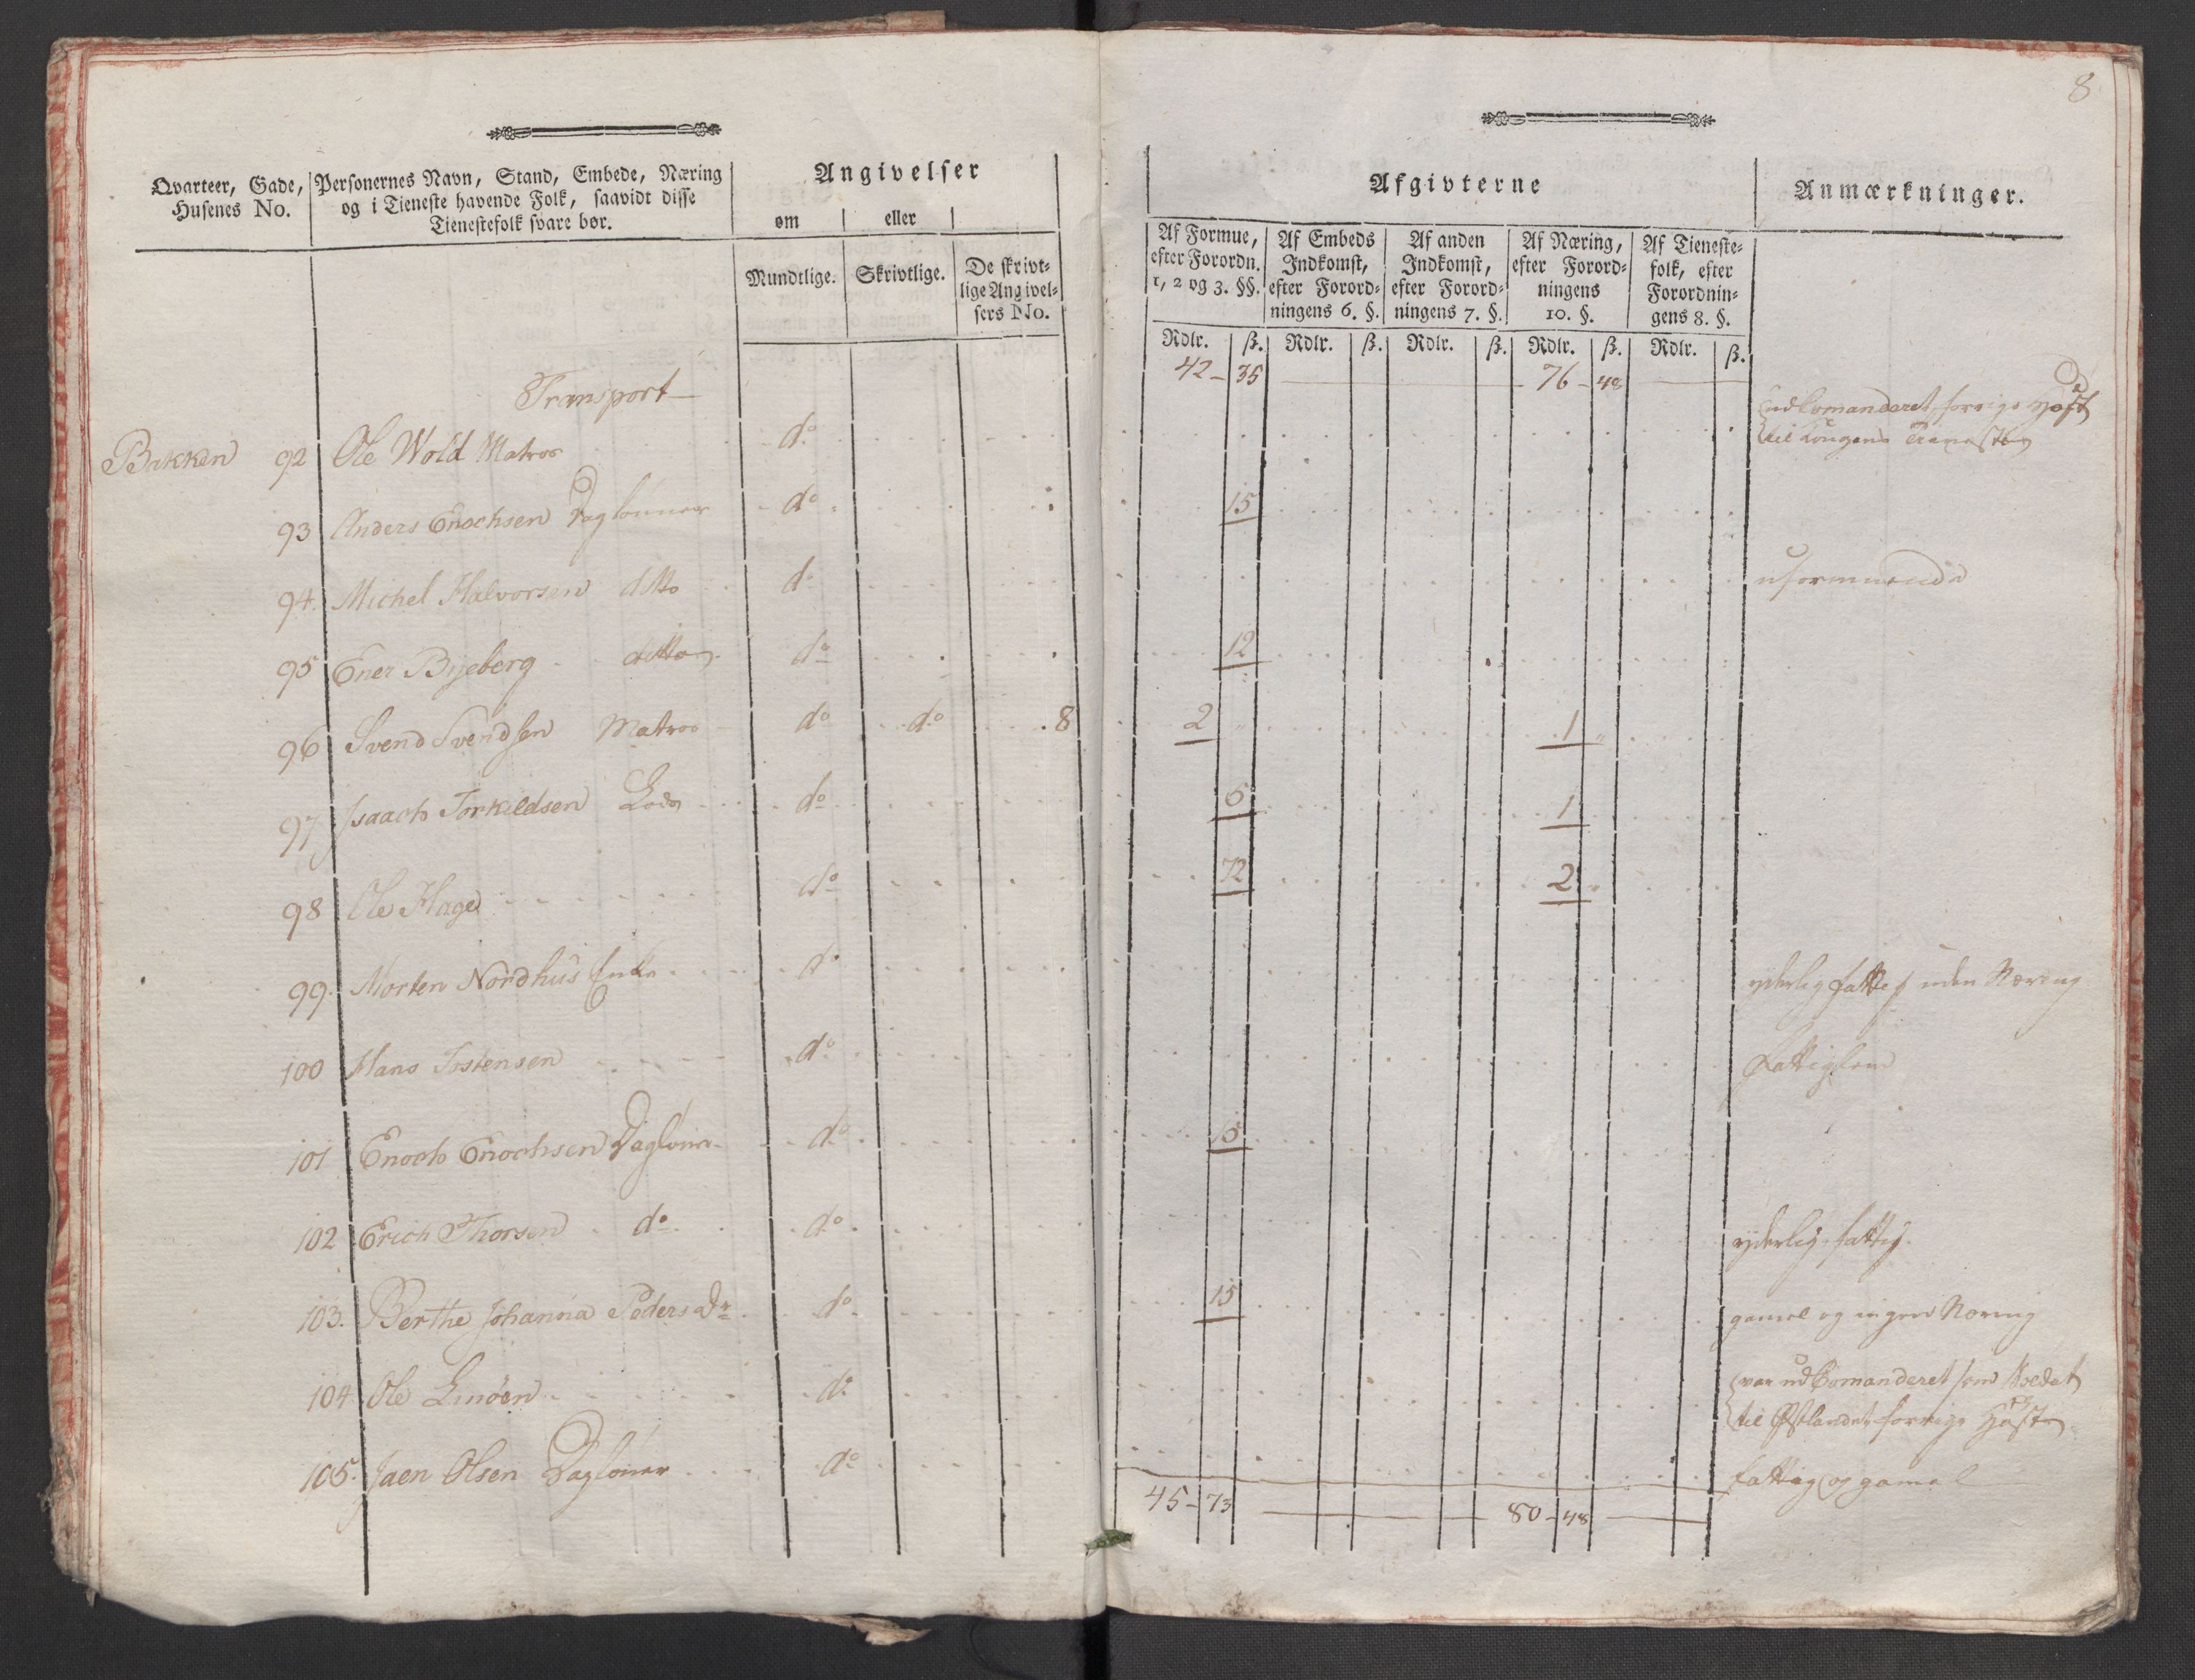 8
Qvarteer, Gade, Husenes No.
Personernes Navn, Stand, Embede, Næring
og i Tieneste havende Folk, saavidt disse
Tienestefolk svare bør.
Angivelser
om eller
Mundtlige. Skrivtlige. De skrivt-
lige Angivel-
sers No.
Afgivterne
Anmærkninger.
Af Formue,
efter Forordn.
1, 2 og 3. §§.
Af Embeds
Indkomst,
efter Forord-
ningens 6. §.
Af anden
Indkomst,
efter Forord-
ningens 7. §.
Af Næring,
efter Forord-
ningens
10. §.
Af Tieneste-
folk, efter
Forordnin-
gens 8. §.
Rdlr. ß. Rdlr. ß. Rdlr. ß. Rdlr. ß. Rdlr. ß.
Transport 42 - 35 76 - 48
Bakken 92 Ole Wold Matros do udkomanderet forrige Høst
til Kongens Tieneste
93 Anders Enochsen Daglønner do 15
94. Michel Halvorsen ditto do uformuende
95 Ener Bijeberg ditto do 12
96 Svend Svendsen Matros do do 8 2 1
97 Isaach Torkildsen Lods do 1
98 Ole Hage do 72 2
99. Morten Nordhus Enke do yderlig fattig uden Næring
100 Hans Istensen do Fattiglem
101 Enoch Enochsen Dagløner do
102 Erich Thorsen do do yderlig fattig.
103. Berthe Johanna Peders Dr do 15 gamel og ingen Næring
104 Ole Linöen do var udkomanderet som Soldat
til Østlandet forrige Høst
105. Jaen Olsen Dagløner do fattig og gamel
45 - 73 80 - 48